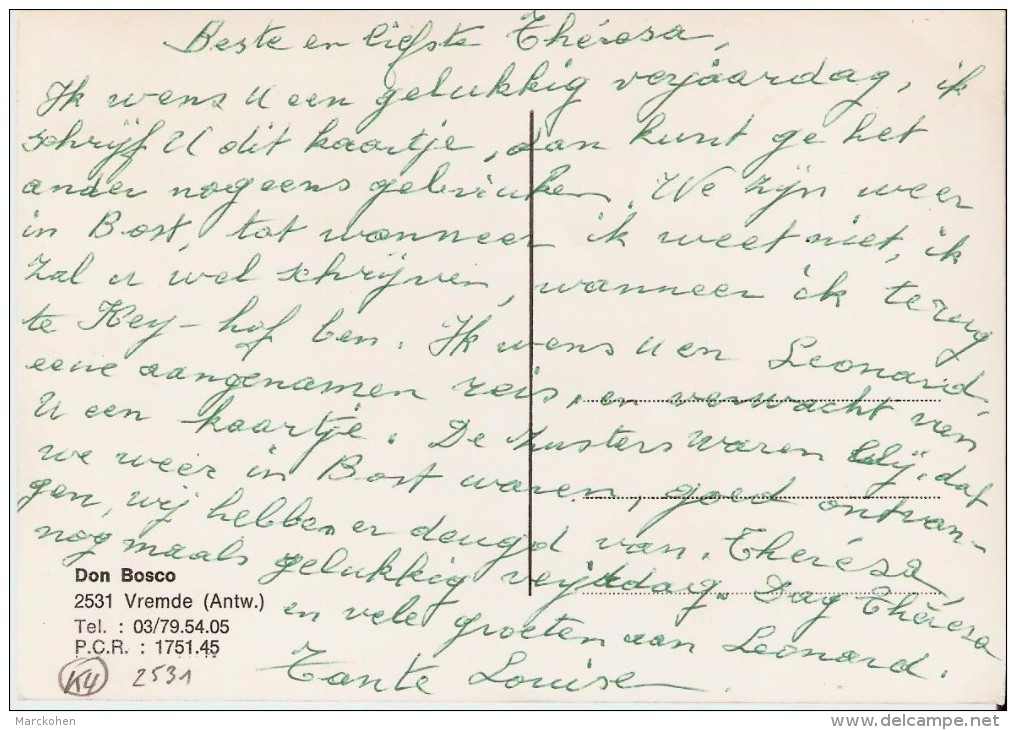 Beste en liefste Thérèsa,
Ik wens U een gelukkig verjaardag, ik
schrijf U dit kaartje, dan kunt ge het
ander nog eens gebruiken. We zijn weer
in Bost, tot wanneer ik weet niet, ik
zal u wel schrijven, wanneer ik terug
te Key-hof ben. Ik wens U en Leonard,
eene aangenamen reis, en verwacht van
U een kaartje. De zusters waren blij, dat
we weer in Bost waren, goed ontvan-
gen, wij hebben er deugd van. Thérèsa,
nogmaals gelukkig verjaardag. Dag Thérèsa
en vele groeten aan Leonard.
Tante Louise.
Don Bosco
2531 Vremde (Antw.)
Tel. : 03/79.54.05
P.C.R. : 1751.45
K4 2531
Marckohen
www.delcampe.net